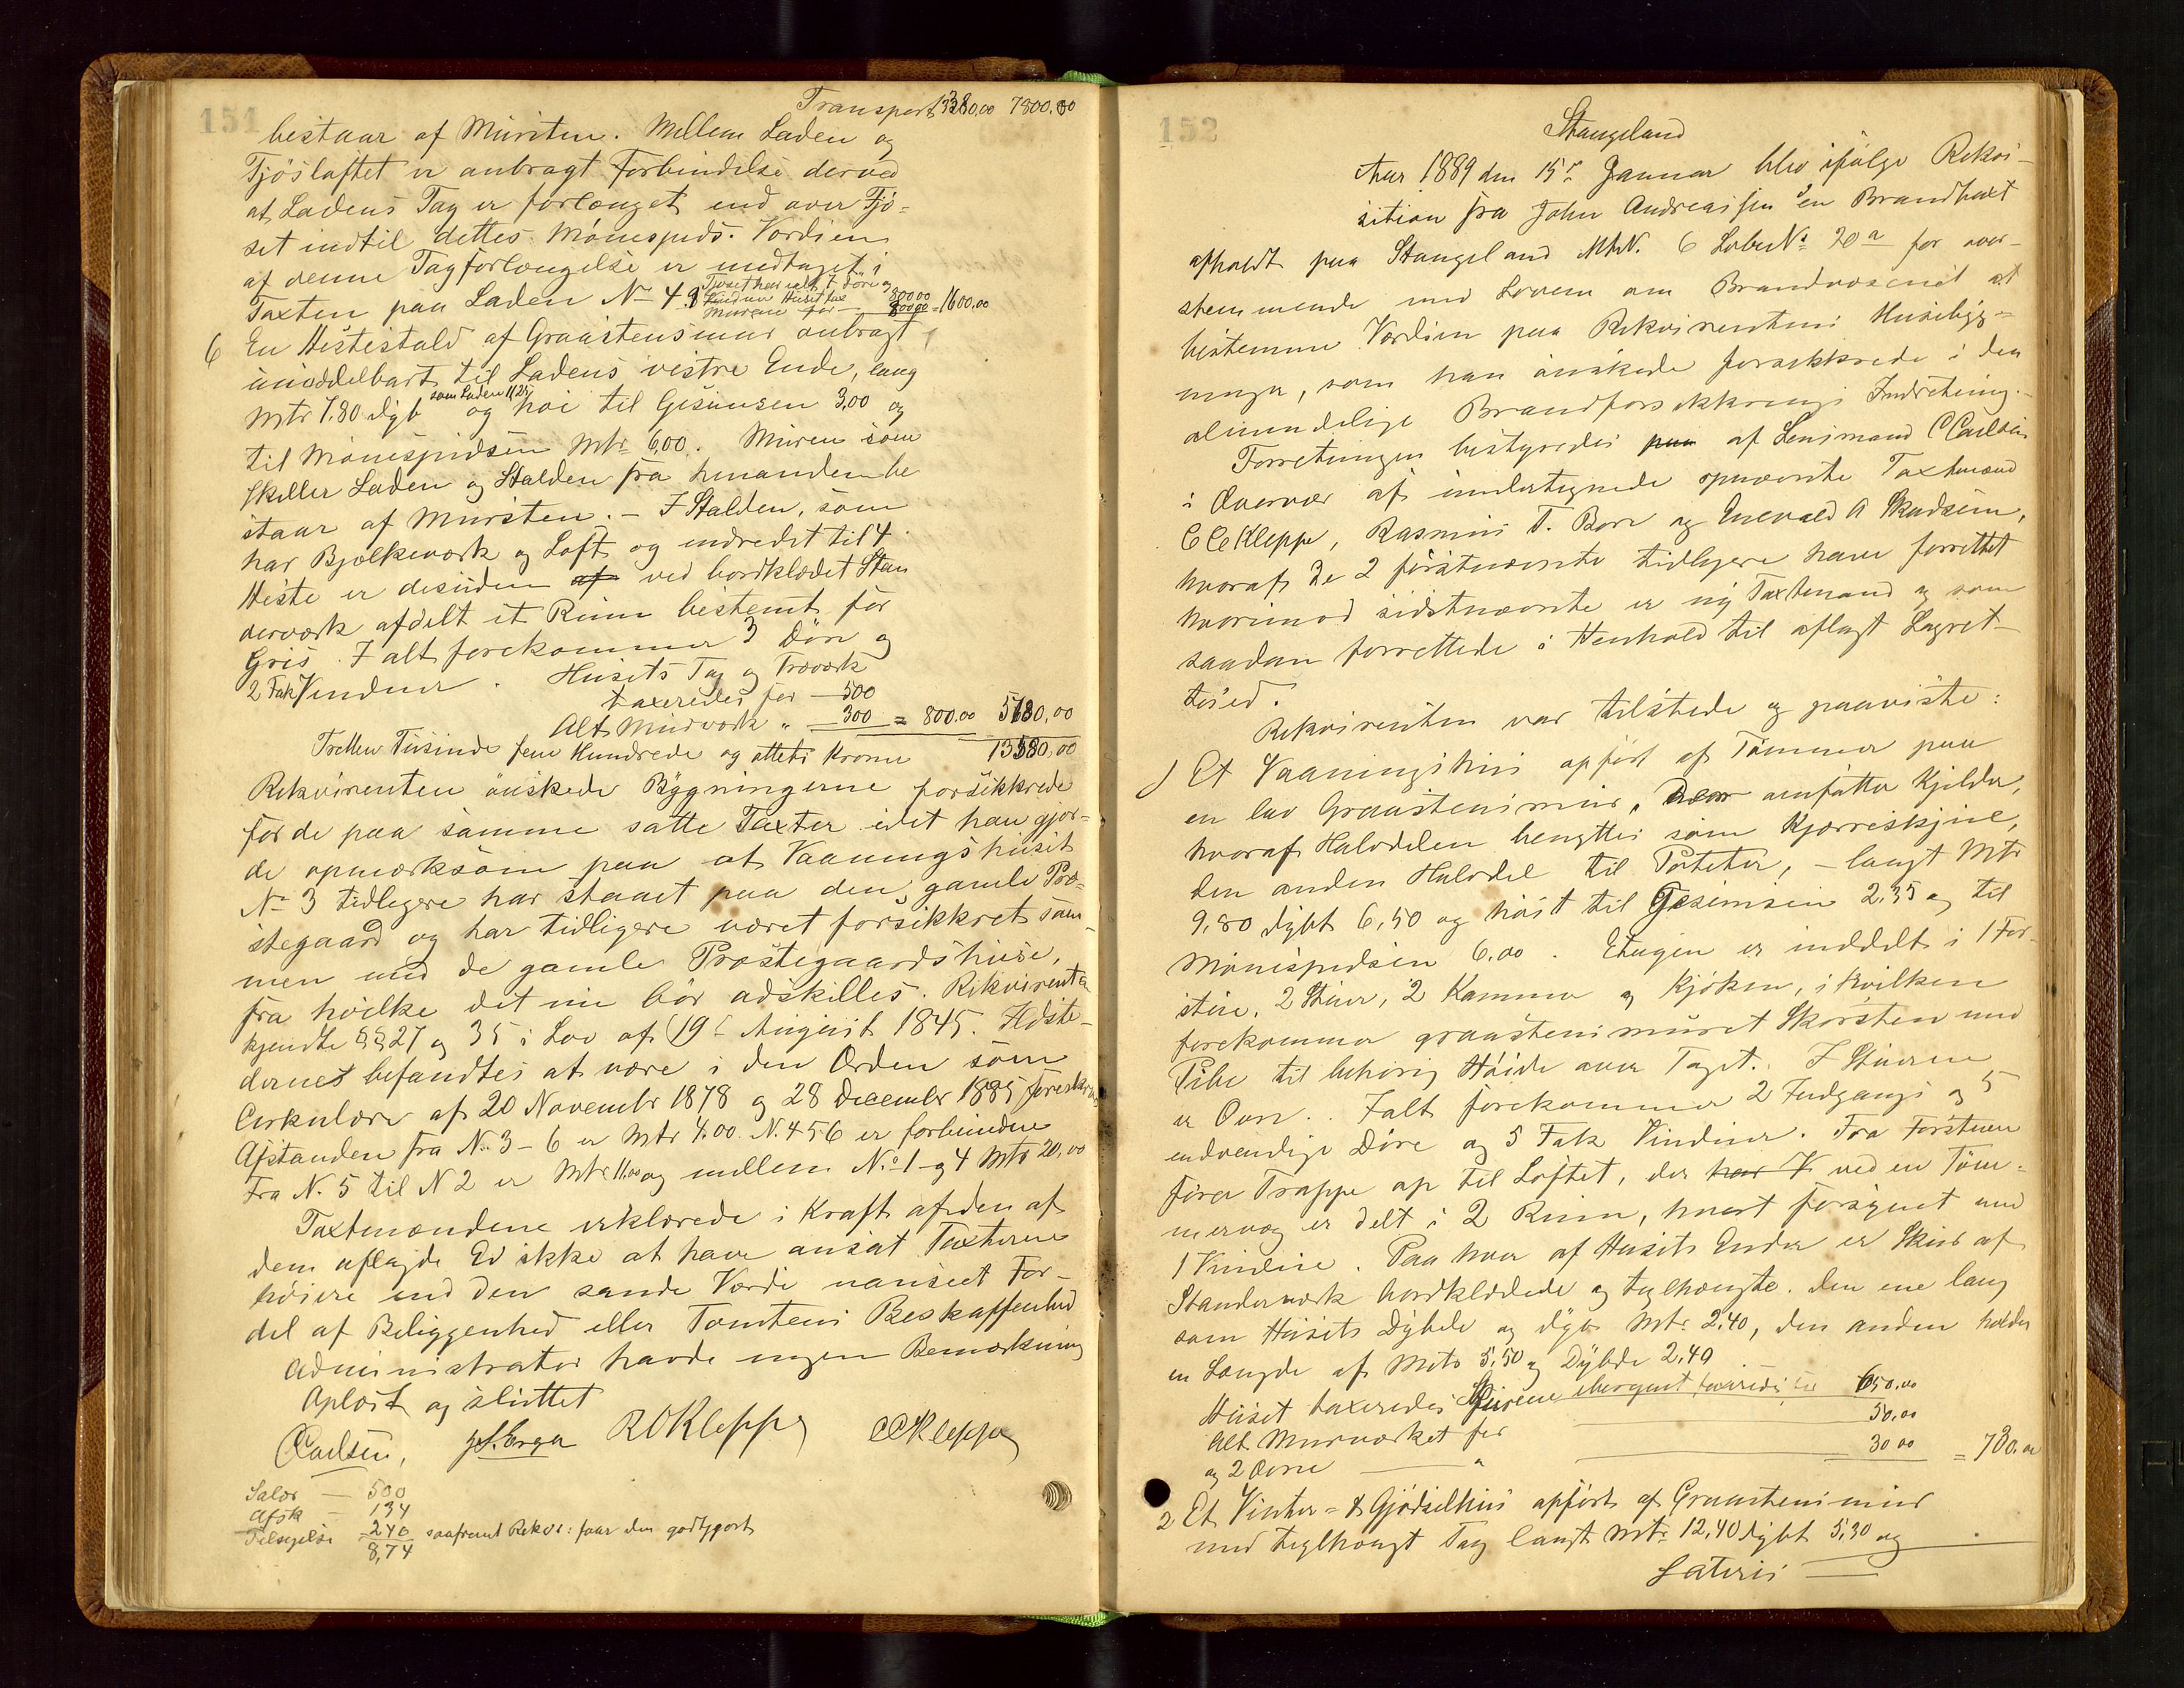 151
Transport 3380,00 7800.00
bestaar af Mursten. Mellem Laden og
Fjösloftet er anbragt Forbindelse derved
at Ladens Tag er forlænget ind over Fjö-
set indtil dettes Mönespids. Værdien
af denne Tagforlængelse er medtaget i
Taxten paa Laden No 4. Fjöset har ialt 7 Döre og
Vinduer Huset tax 800 00
Murene for 800 00 = 1600,00
6 En Hestestald af Graastensmur anbragt
umiddelbart til Ladens vestre Ende, lang
Mtr 7.80 dyb som Laden 11,25 og höi til Gesimsen 3,00 og
til Mönespidsen Mtr 6,00. Muren som
skiller Laden og Stalden fra hinanden be
staar af Mursten. - I Stalden, som
har Bjelkeværk og Loft og indredet til 4
Heste er desuden af ved bordklædet Stan
derværk afdelt et Rum bestemt for
Gris. I alt forekommer 3 Döre og
2 Fak Vinduer. Husets Tag og Træværk
taxeredes for - 500
Alt Murværk " 300 = 800.00 5780,00
Tretten Tusinde fem Hundrede og otteti Kroner 13580,00
Rekvirenten önskede Bygningerne forsikkrede
for de paa samme satte Taxter idet han gjor-
de opmærksom paa at Vaaningshuset
No 3 tidligere har staaet paa den gamle Præ-
stegaard og har tidligere været forsikkret sam-
men med de gamle Præstegaardshuse,
fra hvilke det nu bör adskilles. Rekvirenten
kjendte §§ 27 og 35 i Lov af 19de August 1845. Ildste-
dernes befandtes at være i den Orden som
Cirkulære af 20 November 1878 og 28 December 1885 foreskriver
Afstanden fra No. 3 - 6 er Mtr 4.00 No. 4 5 6 er forbundne
Fra No. 5 til No 2 er Mtr 11.00 og mellem No. 1 og 4 Mtr 20,00
Taxtmændene erklærede i Kraft af den af
dem aflagte Ed ikke at have ansat Taxterne
höiere end den sande Værdi uanseet For-
del af Beliggenhed eller Tomtens Beskaffenhed
Administrator havde ingen Bemærkning
Oplæst og sluttet
CCarlsen, R O Kleppe CCKleppe
Salær - 500
Afsk - 134
Tilsigelse 240 saafremt Rekvr: faar den godtgjort
8,74
152
Stangeland
Aar 1889 den 15de Januar blev ifölge Rekvi-
sition fra John Andreassen en Brandtaxt
afholdt paa Stangeland MtrN. 6 LöbeNo 20a for over-
stemmende med Loven om Brandvæsenet at
bestemme Værdien paa Rekvirentens Husebyg-
ninger, som han önskede forsikkrede i den
almindelige Brandforsikkrings Indretning.
Forretningen bestyredes paa af Lensmand CCarlsen
i Overvær af undertegnede opnævnte Taxtmænd
C C Kleppe, Rasmus T. Bore og Enevald A Skadsem,
hvoraf de 2 förstnævnte tidligere have forrettet
hvorimod sidstnævnte er ny Taxtmand og som
saadan forrettede i Henhold til aflagt Lagret-
tesed.
Rekvirenten var tilstede og paaviste:
1 Et Vaaningshus opfört af Tömmer paa
en lav Graastensmur, omfatter Kjelder,
hvoraf Halvdelen benyttes som Kjærreskjul,
den anden Halvdel til Poteter, - langt Mtr
9,80 dybt 6,50 og höit til Gesimsen 2.35 og til
Mönespidsen 6.00. Etagen er inddelt i 1 For-
stue, 2 Stuer, 2 Kammer og Kjöken, i hvilken
forekommer graastensmuret Skorsten med
Pibe til behörig Höide over Taget. I Stuerne
er Ovn. Ialt forekommer 2 Indgangs og 5
indvendige Döre og 5 Fak Vinduer. Fra Forstuen
förer Trappe op til Loftet, der har V ved en Töm-
mervæg er delt i 2 Rum, hvert forsynet med
1 Vindue. Paa hver af Husets Ender er Skur af
Standerværk bordklædede og teglhængte. Den ene lang
som Husets Dybde og dyb Mtr 2.40, den anden holder
en Længde af Mtr 5.50 og Dybde 2.40
Huset taxeredes Skurene iberegnet taxeredes for 650.00
Alt Murværket for 50,00
og 2 Ovne " 30 00 = 730.00
2 Et Vinter- & Gjödselhus opfört af Graastensmur
med teglhængt Tag langt Mtr 12,40 dybt 5,30 og
Lateris